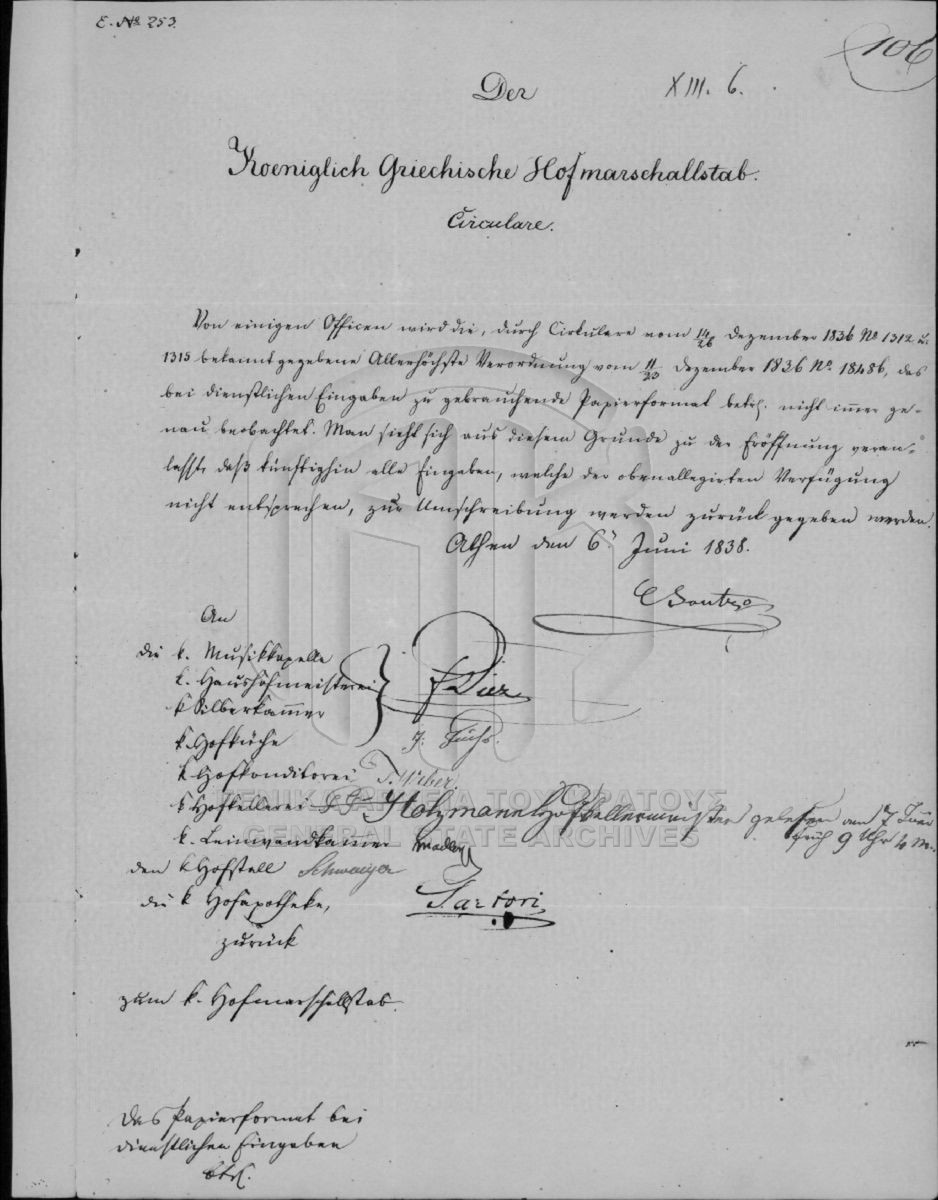 E. No 253.
106
Der
XIII. 6.
Koeniglich Griechische Hofmarschallstab.
Circulare.
Von einigen Officen wird die, durch Cirkulare vom 14/26 Dezember 1836 No 1312 u.
1315 bekannt gegebene Allerhöchste Verordnung vom 11/23 Dezember 1836 No. 18486, das
bei dienstlichen Eingaben zu gebrauchende Papierformat betrf. nicht immer ge-
nau beobachtet. Man sieht sich aus diesem Grunde zu der Eröffnung veran-
lasst, daß künftighin alle Eingaben, welche der obenallegirten Verfügung
nicht entsprechen, zur Umschreibung werden zurück gegeben werden.
Athen den 6. Juni 1838.
C Soutzo
An
die k. Musikkapelle
k. Haushofmeisterei
k Silberkammer
k Hofküche J. Fuchs.
k Hofkonditorei J. Weber
k Hofkellerei Holzmann Hofkellermeister gelesen am 7 Juni
früh 9 Uhr
k. Leinwandkammer
den k Hofstall Schweiger
die k Hofapotheke, Sartori
zurück
zum k. Hofmarschallstab.
Das Papierformat bei
dienstlichen Eingaben
betrf.
ΓΕΝΙΚΑ ΑΡΧΕΙΑ ΤΟΥ ΚΡΑΤΟΥΣ
GENERAL STATE ARCHIVES